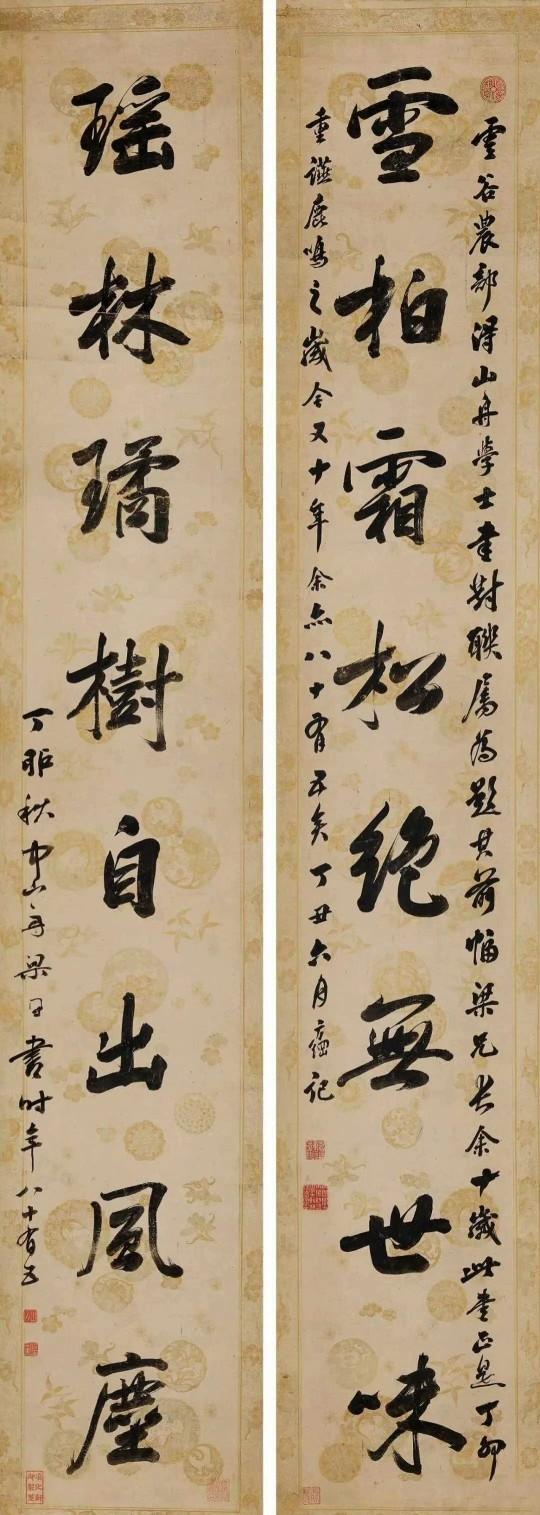 雲谷農部得山舟學士書對聯屬為題其前幅梁兄長余十歲此書正是丁卯
雪柏霜松絕無世味
重讌鹿鳴之歲今又十年余亦八十有五矣丁丑六月方綱記
瑶林璚樹自出風塵
丁卯秋中山舟梁同書時年八十有五